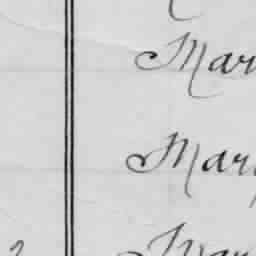 Mar
Mary
Mar